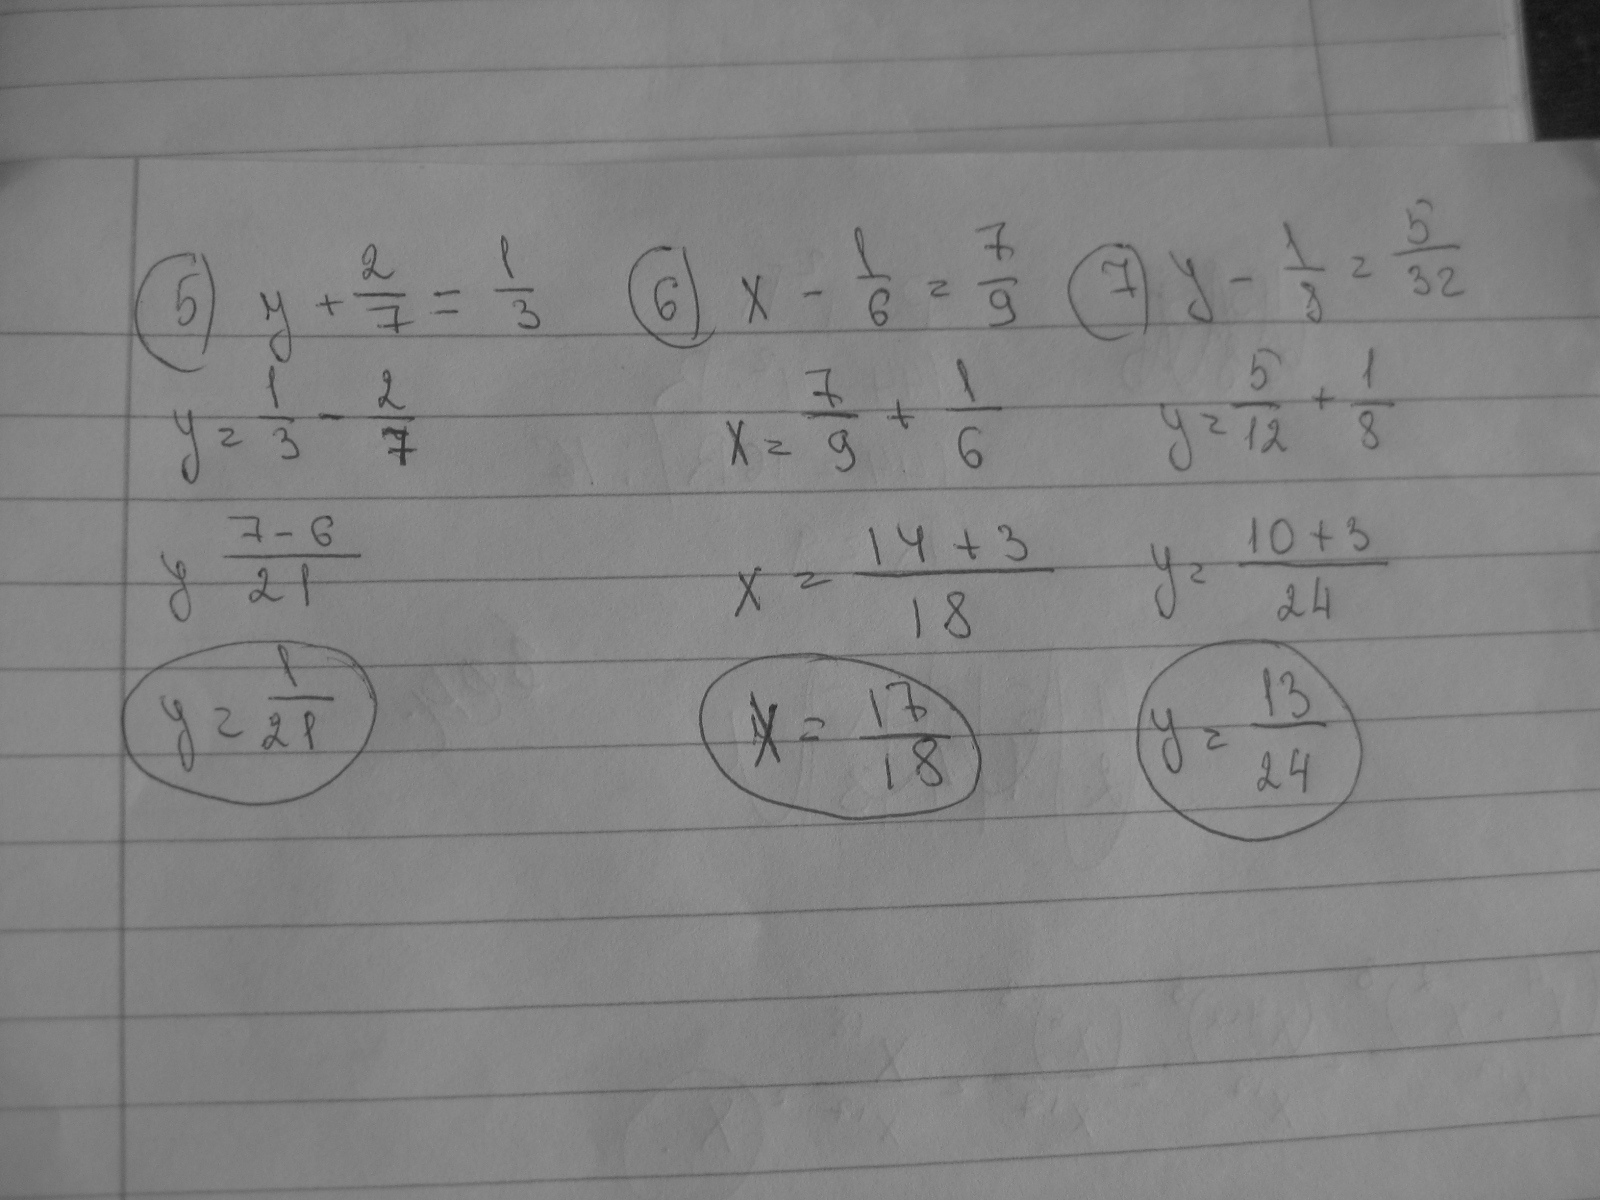 5 y + 2/7 = 1/3
y = 1/3 - 2/7
y 7-6/21
y = 1/21
6 x - 1/6 = 7/9
x = 7/9 + 1/6
x = 14+3/18
x = 17/18
7 y - 1/8 = 5/32
y = 5/12 + 1/8
y = 10+3/24
y = 13/24